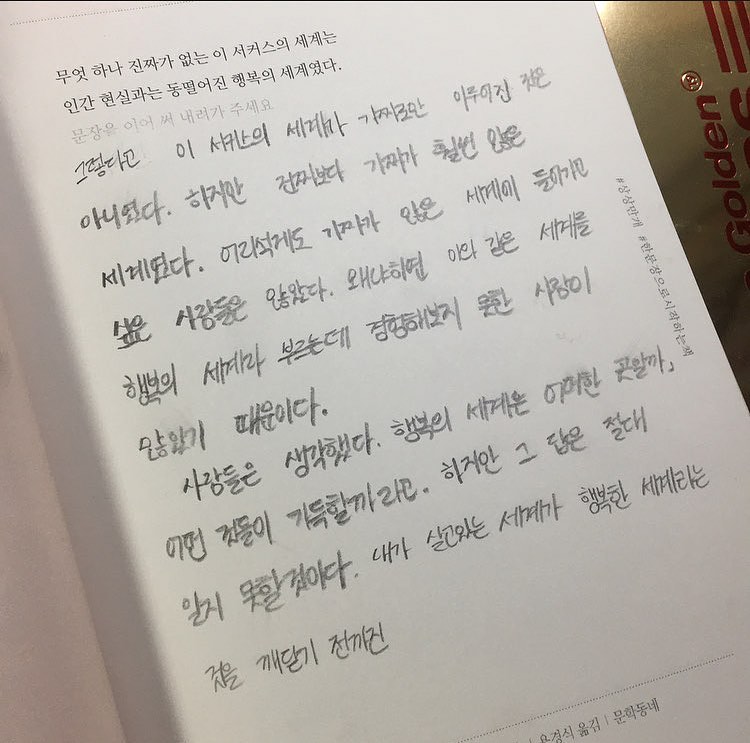 무엇 하나 진짜가 없는 이 서커스의 세계는
인간 현실과는 동떨어진 행복의 세계였다.
문장을 이어 써 내려가 주세요
그렇다고 이 서커스의 세계가 가짜로만 이루어진 것은
아니였다. 하지만 진짜보다 가짜가 훨번 많은
세계였다. 어리석게도 가짜가 많은 세계에 들어가고
싶은 사람들은 많았다. 왜냐하면 이와 같은 세계를
행복의 세계라 부르는데 경험해보지 못한 사람이
많았기 때문이다.
사람들은 생각했다. 행복의 세계는 어떠한 곳일까,
어떤 것들이 가득할까 라고. 하지만 그 답은 절대
알지 못할 것이다. 내가 살고있는 세계가 행복한 세계라는
것을 깨닫기 전까진
#상상만개 #한문장으로시작하는책
용경식 옮김 | 문학동네
Golden